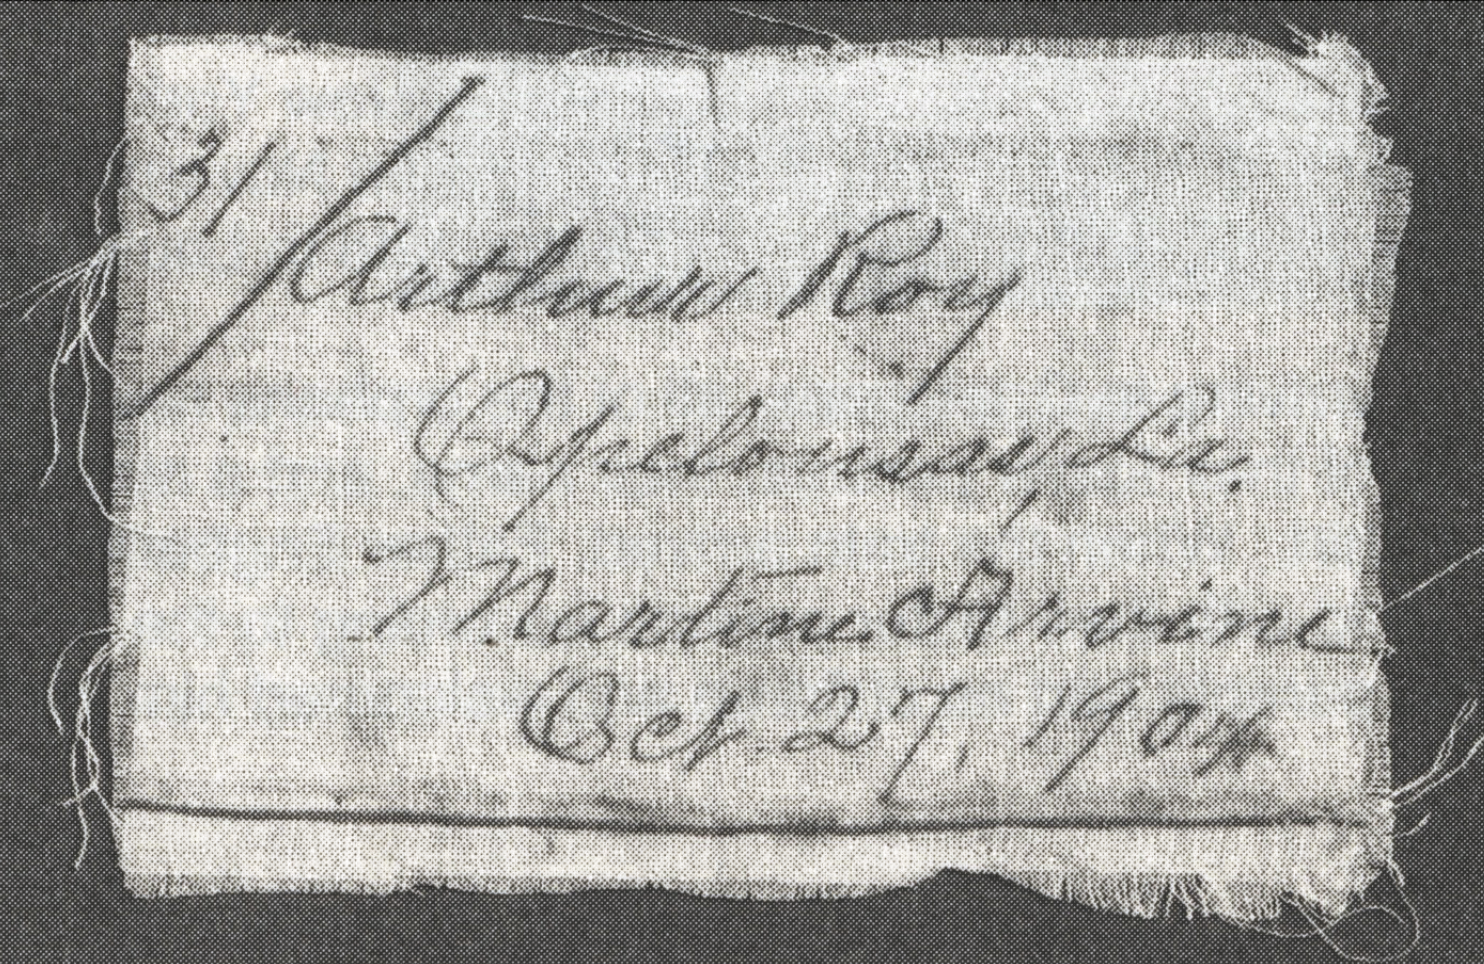 31
Arthur Roy
Opelousas La.
Martin Arvine
Oct. 27, 1904